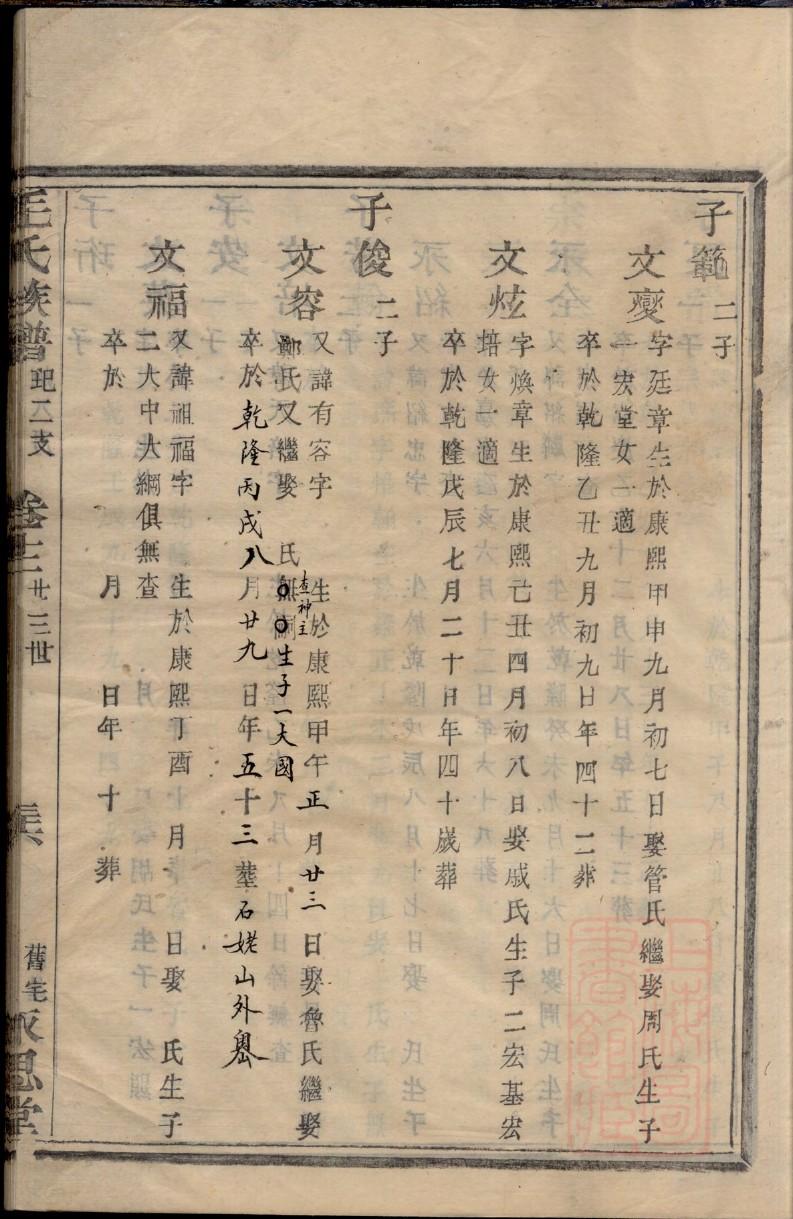 子範 二子
文燮 字廷章生於康熙甲申九月初七日娶管氏繼娶周氏生子
一宏堂女一適
卒於乾隆乙丑九月初九日年四十二葬
文炫 字煥章生於康熙己丑四月初八日娶戚氏生子二宏基宏
培女一適
卒於乾隆戊辰七月二十日年四十歲葬
子俊 二子
文容 又諱有容字 生於康熙甲午正月廿三日娶魯氏繼娶
查神主
鄭氏又繼娶 氏無嗣生子一大國
卒於乾隆丙戌八月廿九日年五十三葬石姥山外
文福 又諱祖福字 生於康熙丁酉十月 日娶 氏生子
二大中大綱俱無查
卒於 月 日年四十 葬
毛氏族譜 二支 卷 廿三世
舊宅 永思堂